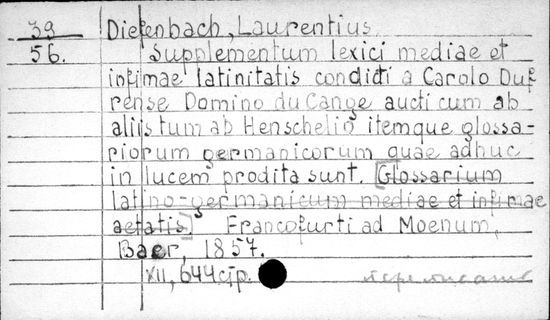 39 Diefenbach, Laurentius.
56. Supplementum lexici mediae et
infimae latinitatis conditi a Carolo Duf
rense Domino du Cange aucti cum ab
aliis tum ab Henschelio itemque glossa-
riorum germanicorum quae adhuc
in lucem prodita sunt. [Glossarium
latino-germanicum mediae et infimae
aetatis] Francofurti ad Moenum,
Baer, 1857.
XII, 644 стр.